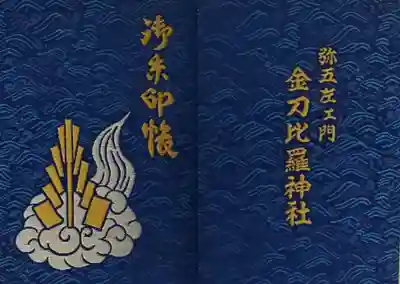 御朱印帳
弥五左ェ門
金刀比羅神社